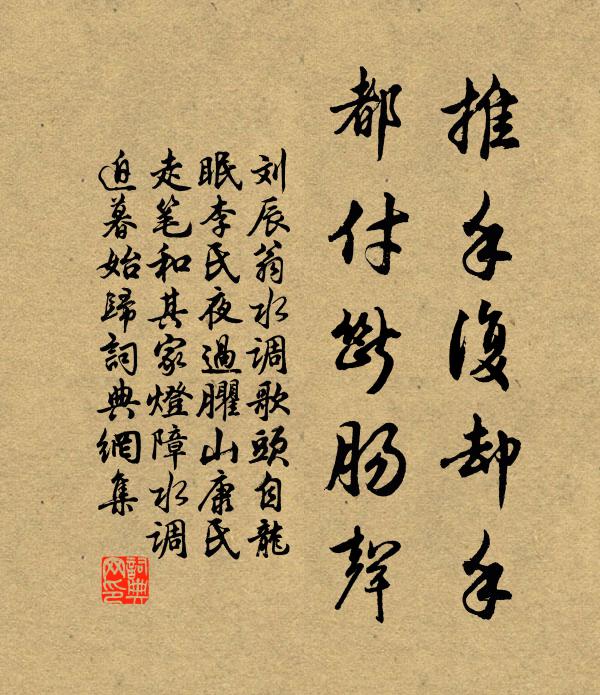 推手復却手
都付断肠聲
刘辰翁水调歌頭自龍
眠李氏夜過臞山康氏
走笔和其家燈障水调
迫暮始歸詞典網集
詞典
网印